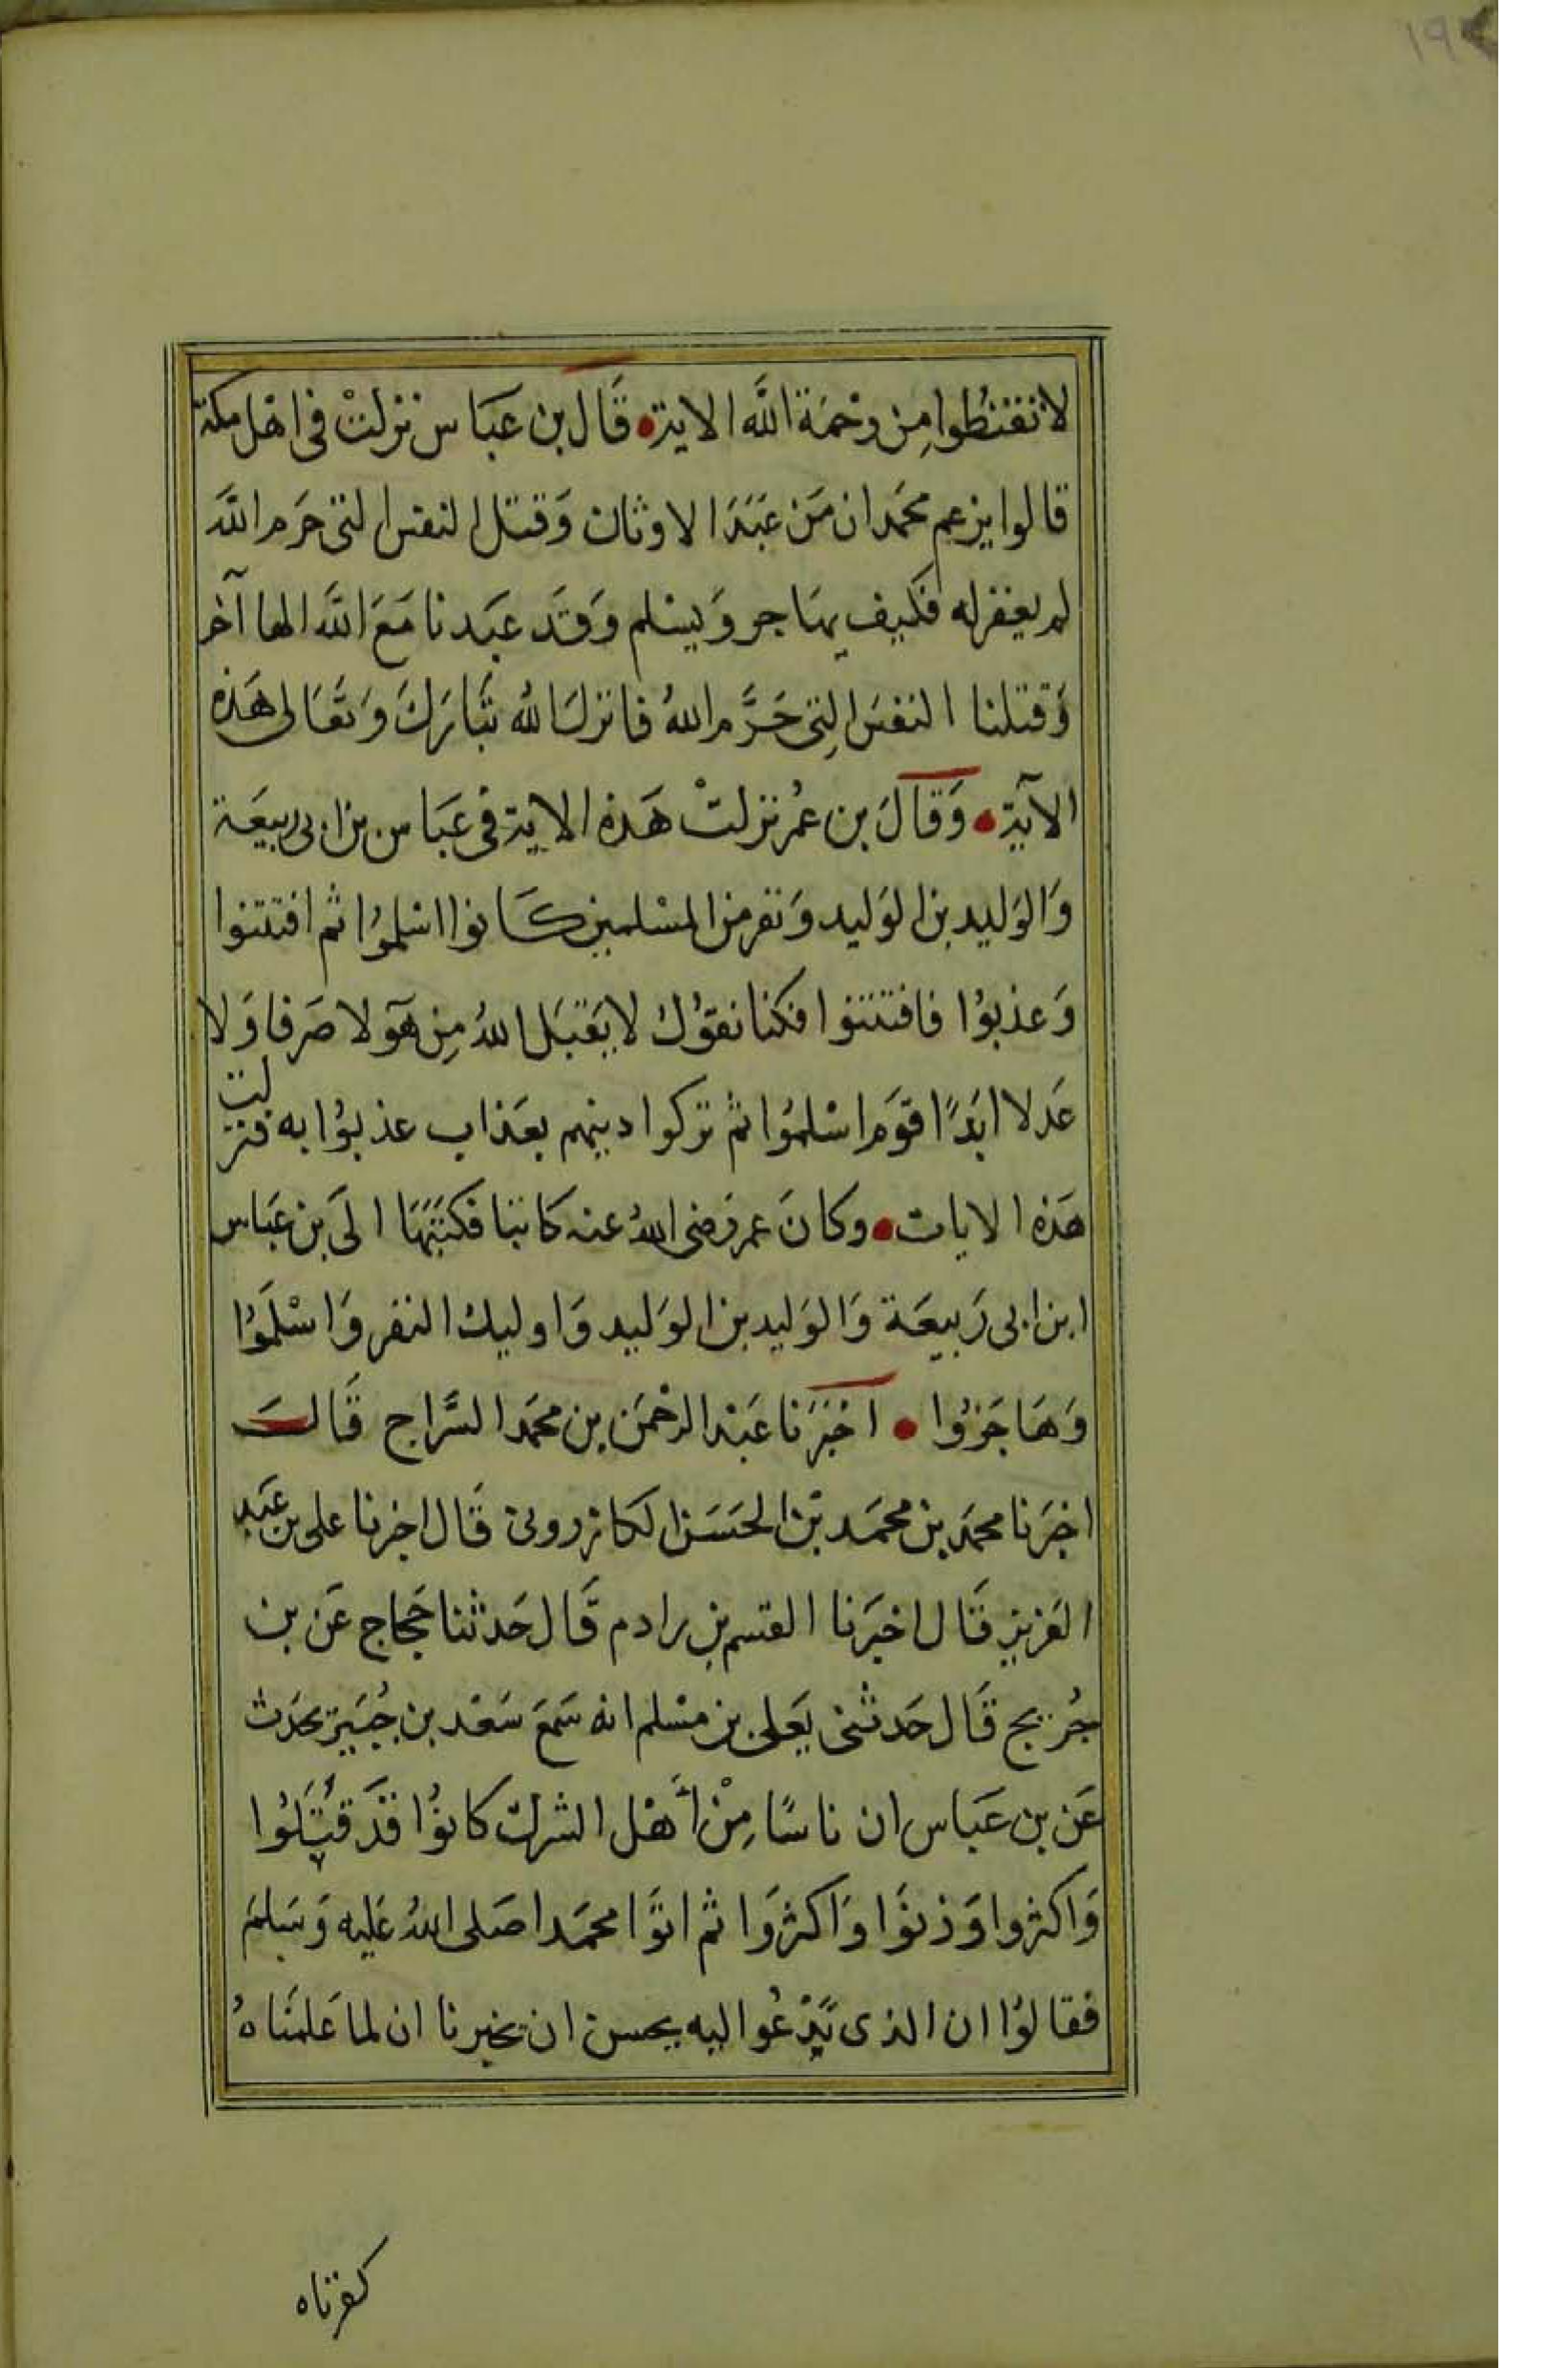 لا تقنطوا من رحمة الله الاية قال بن عباس نزلت فى اهل مكة
قالوا يزعم محمد ان من عبد الاوثان وقتل النفس التى حرم الله
لم يغفر له فكيف يهاجر ويسلم وقد عبدنا مع الله الها آخر
وقتلنا النفس التى حرم الله فانزل الله تبارك وتعالى هذه
الآية وقال بن عمر نزلت هذه الاية فى عباس بن ابى ربيعة
والوليد بن الوليد ونفر من المسلمين كانوا اسلموا ثم افتتنوا
وعذبوا فافتتنوا فكنا نقول لا يقبل الله من هولا صرفا ولا
عدلا ابدا قوم اسلموا ثم تركوا دينهم بعذاب عذبوا به فنزلت
هذه الايات وكان عمر رضى الله عنه كاتبا فكتبها الى بن عباس
ابن ابى ربيعة والوليد بن الوليد واوليك النفر واسلموا
وهاجروا اخبرنا عبد الرحمن بن محمد السراج قال
اخبرنا محمد بن محمد بن الحسن الكازرونى قال اخبرنا على بن عبد
العزيز قال اخبرنا القسم بن رادم قال حدثنا حجاج عن بن
جريج قال حدثنى يعلى بن مسلم انه سمع سعد بن جبير يحدث
عن بن عباس ان ناسا من أهل الشرك كانوا قد قتلوا
واكثروا وزنوا واكثروا ثم اتوا محمدا صلى الله عليه وسلم
فقالوا ان الذى تدعوا اليه يحسن ان يخبرنا ان لما علمناه
كفرتاه